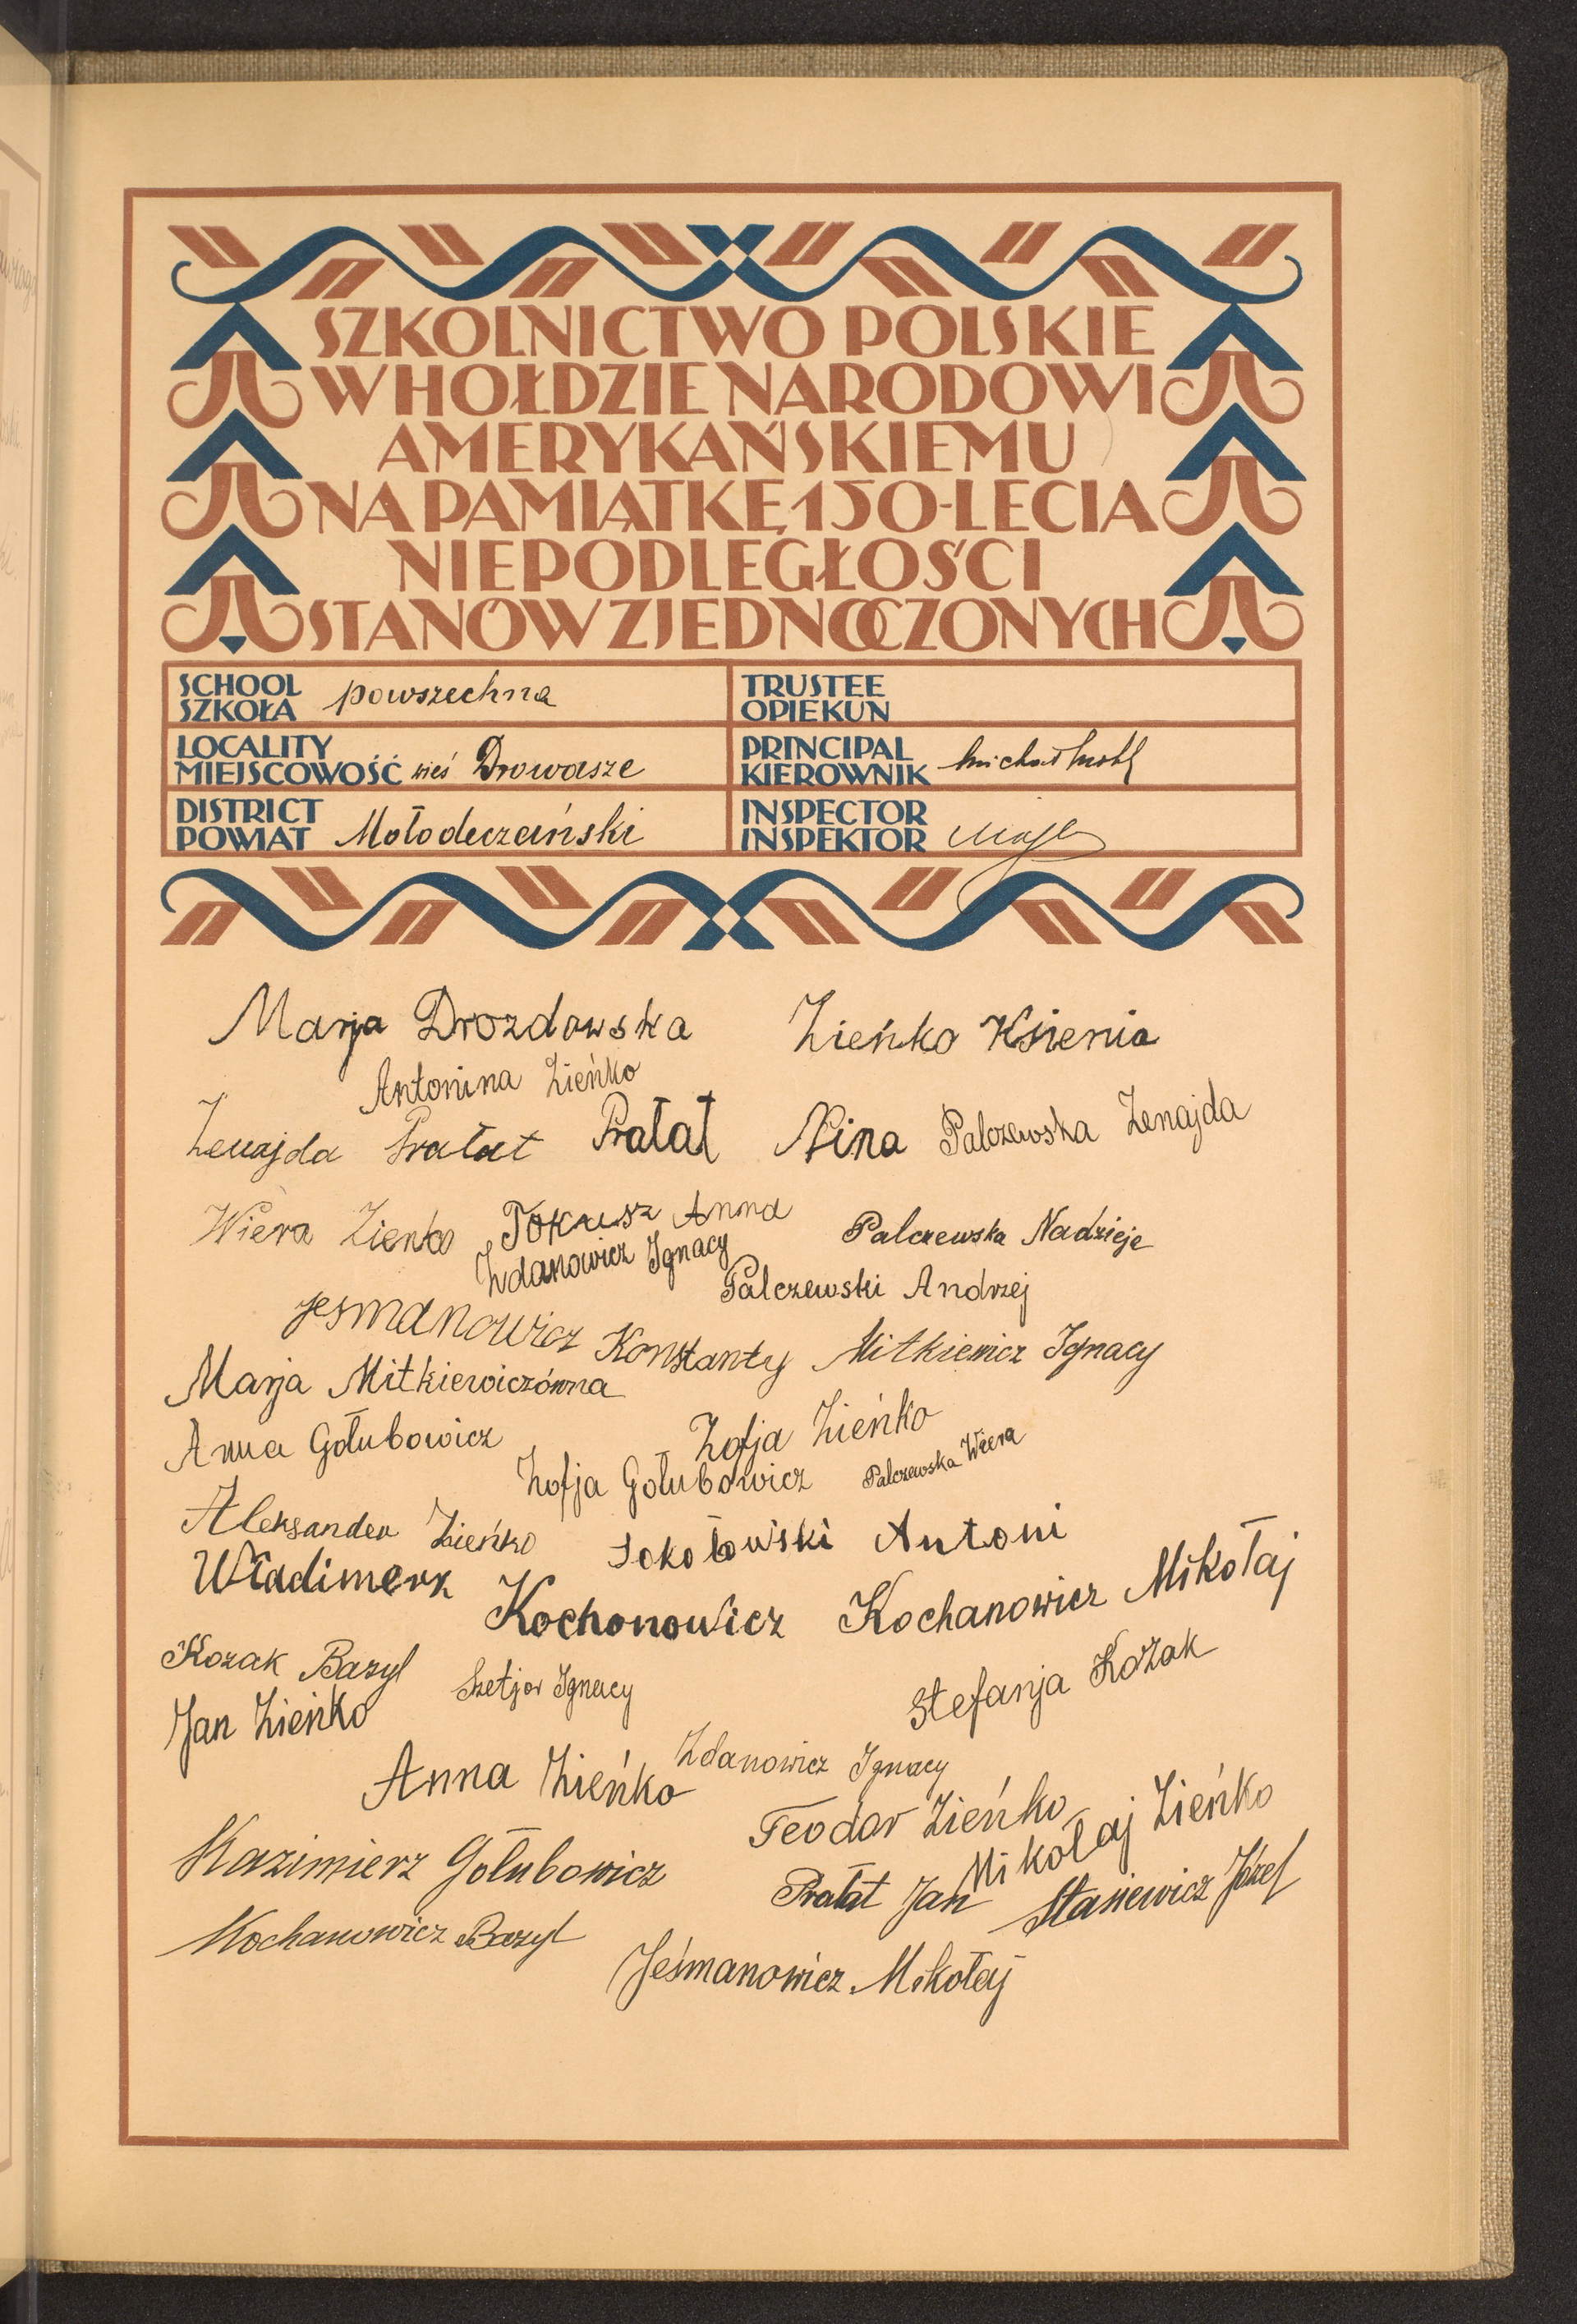 SZKOLNICTWO POLSKIE
W HOŁDZIE NARODOWI
AMERYKAŃSKIEMU
NA PAMIĄTKĘ 150-LECIA
NIEPODLEGŁOŚCI
STANÓW ZJEDNOCZONYCH
SCHOOL
SZKOŁA powszechna
TRUSTEE
OPIEKUN
LOCALITY
MIEJSCOWOŚĆ wieś Drowasze
PRINCIPAL
KIEROWNIK Michał
DISTRICT
POWIAT Mołodeczański
INSPECTOR
INSPEKTOR
Marja Drozdowska Zieńko Ksienia
Antonina Zieńko
Zenajda Prałat Prałat Nina Palczewska Zenajda
Wiera Zienko Tokusz Anna Palczewska Nadzieje
Zdanowicz Ignacy
Palczewski Andrzej
Jesmanowicz Konstanty Mitkiewicz Ignacy
Marja Mitkiewiczówna
Anna Gołubowicz Zofja Zieńko
Zofja Gołubowicz Palczewska Wiera
Aleksander Zieńko Sokołowski Antoni
Władimerk Kochonowicz Kochanowicz Mikołaj
Kozak Bazyl Szetjor Ignacy Stefanja Kozak
Jan Zieńko
Anna Zieńko Zdanowicz Ignacy
Teodor Zieńko Mikołaj Zieńko
Kazimierz Gołubowicz Prałat Jan Stasiewicz Józef
Kochanowicz Bazyl
Jeśmanowicz Mikołaj